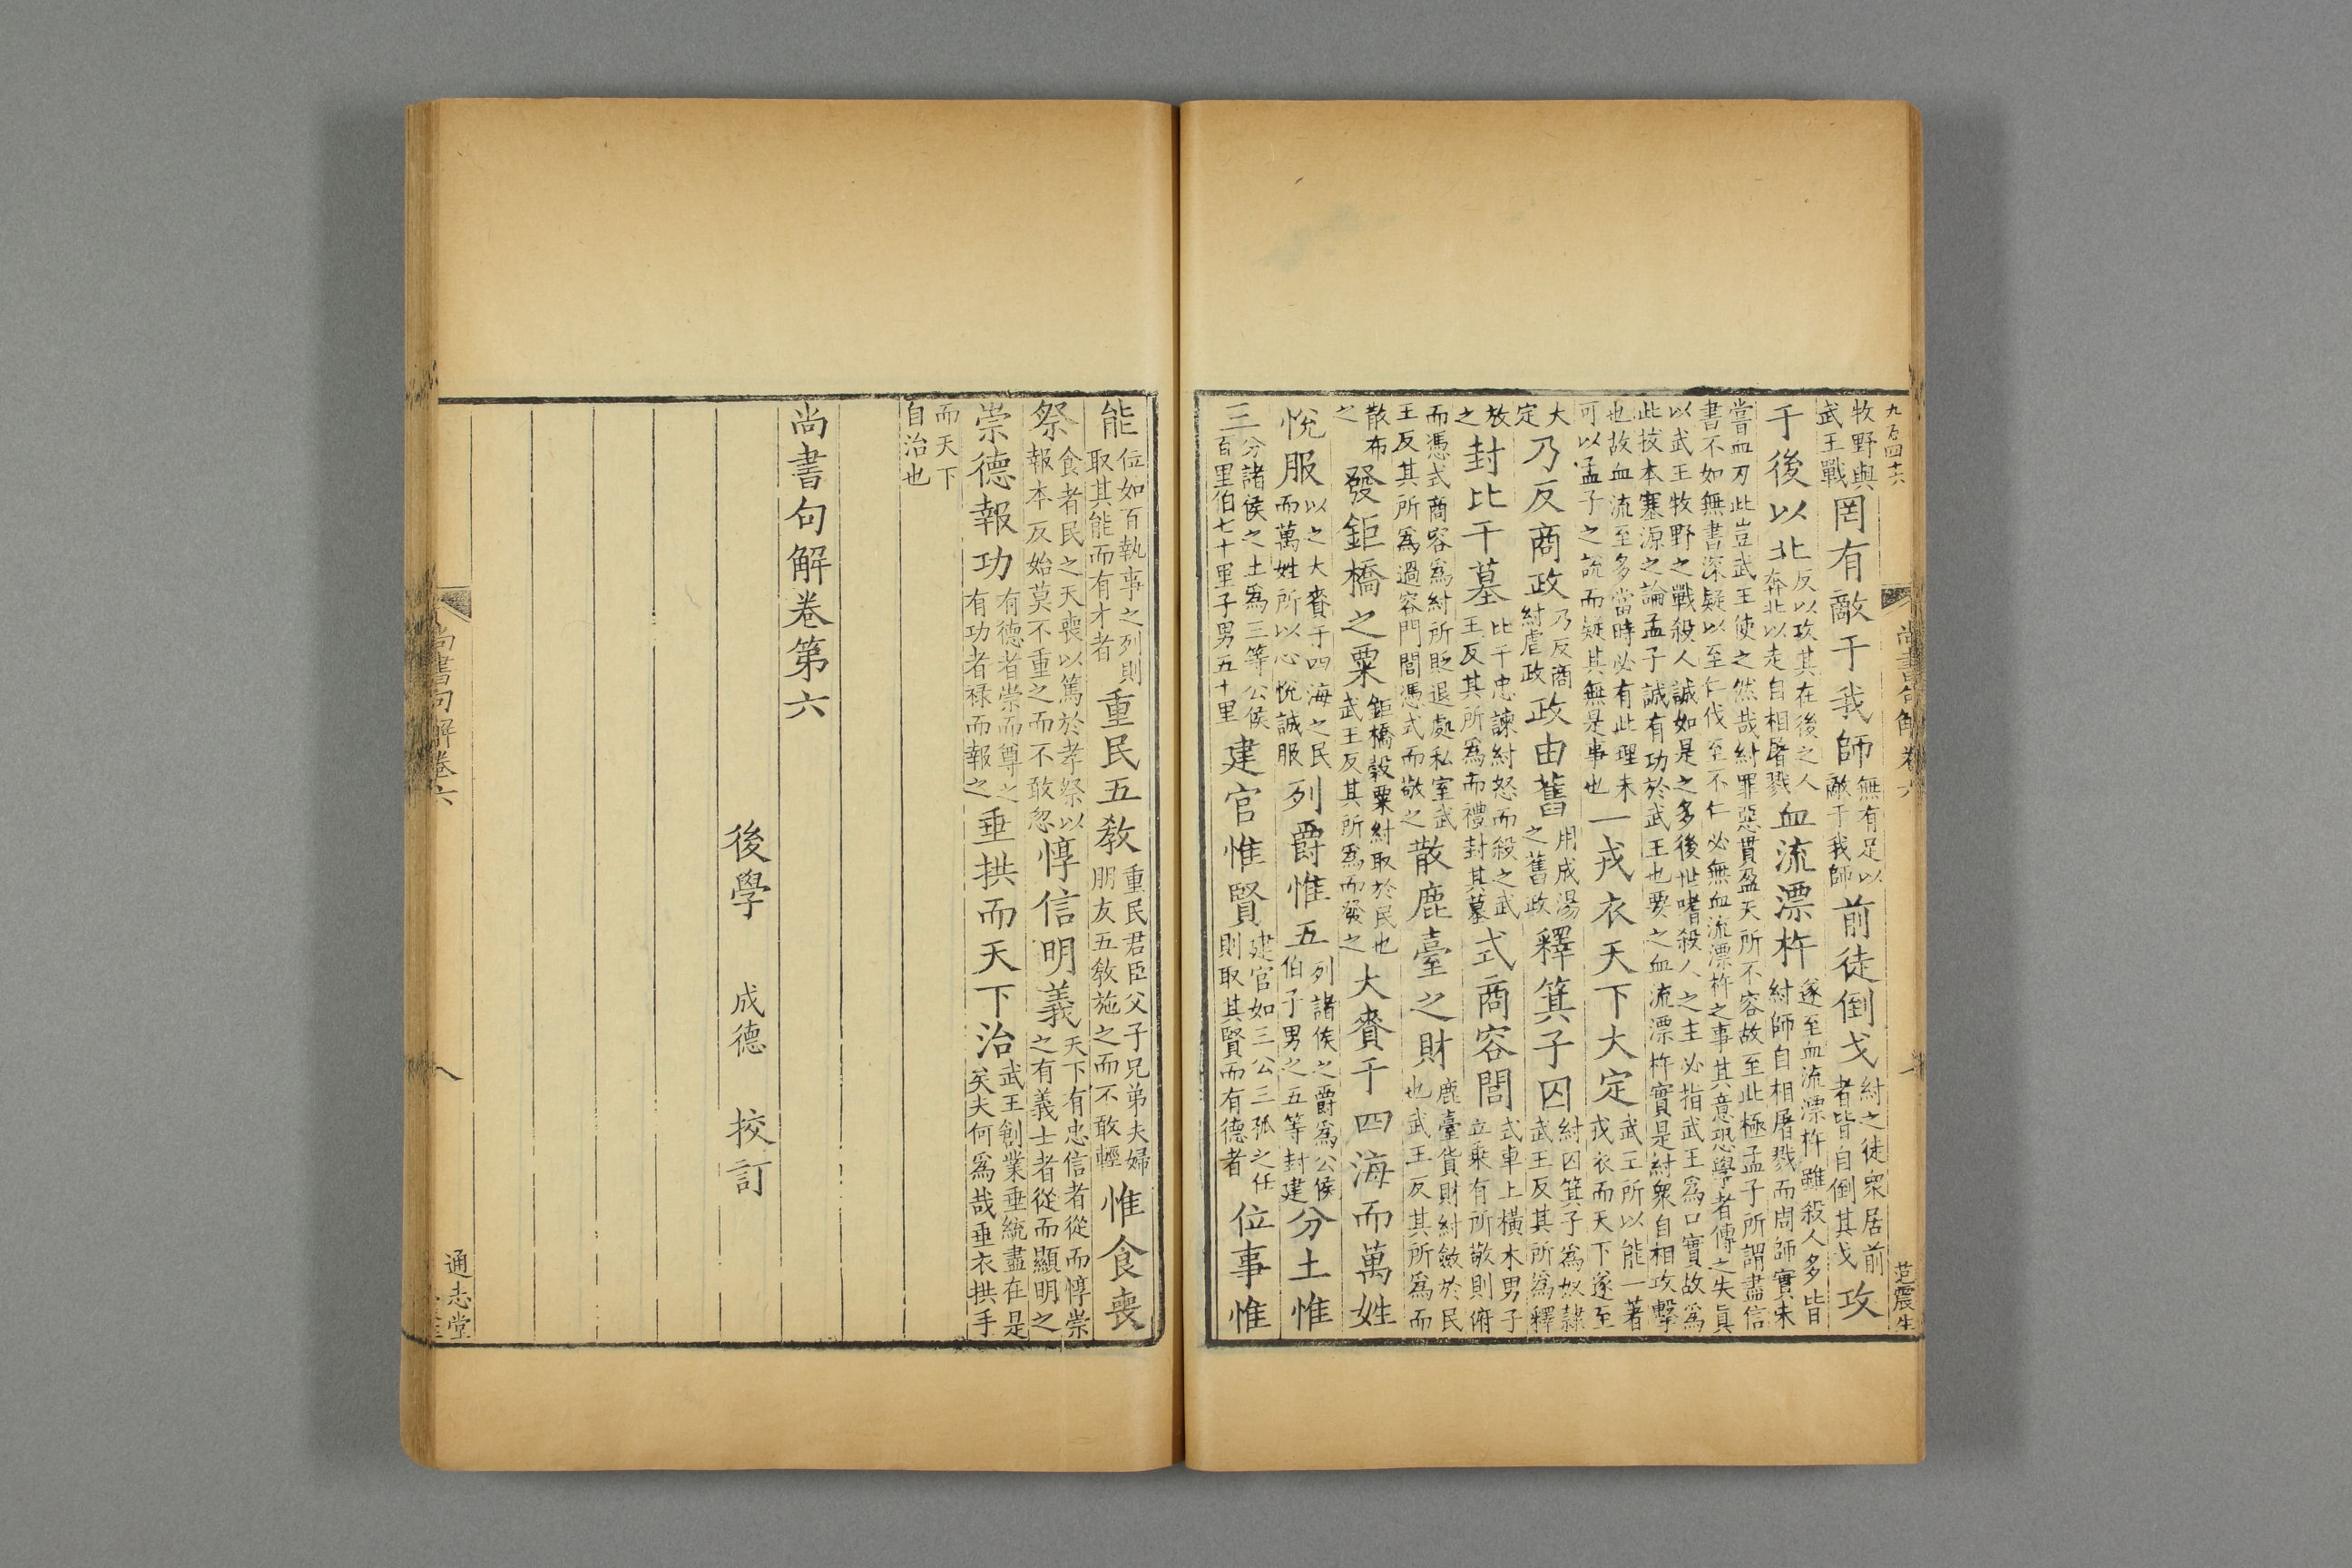 九百四十六 尚書句解卷六 一 范震生
牧野與武王戰罔有敵于我師無有足以敵于我師前徒倒戈紂之徒衆居前者皆自倒其戈攻
于後以北反以攻其在後之人奔北以走自相屠戮血流漂杵遂至血流漂杵雖殺人多皆紂師自相屠戮而周師實未
嘗血刃此豈武王使之然哉紂罪惡貫盈天所不容故至此極孟子所謂盡信
書不如無書深疑以至仁伐至不仁必無血流漂杵之事其意恐學者傳之失眞
以武王牧野之戰殺人誠如是之多後世嗜殺人之主必指武王爲口實故爲
此拔本塞源之論孟子誠有功於武王也要之血流漂杵實是紂衆自相攻擊
也故血流至多當時必有此理未可以孟子之說而疑其無是事也一戎衣天下大定武王所以能一著戎衣而天下遂至
大定乃反商政乃反商紂虐政政由舊用成湯之舊政釋箕子囚紂囚箕子爲奴隷武王反其所爲釋
放之封比干墓比干忠諫紂怒而殺之武王反其所爲而禮封其墓式商容閭式車上橫木男子立乗有所敬則俯
而憑式商容爲紂所貶退處私室武王反其所爲過容門閭憑式而敬之散鹿臺之財鹿臺貨財紂斂於民也武王反其所爲而
散布之發鉅橋之粟鉅橋穀粟紂取於民也武王反其所爲而發之大賚于四海而萬姓
悅服以之大賚于四海之民而萬姓所以心悅誠服列爵惟五列諸侯之爵爲公侯伯子男之五等封建分土惟
三分諸侯之土爲三等公侯百里伯七十里子男五十里建官惟賢建官如三公三孤之任則取其賢而有德者位事惟
能位如百執事之列則取其能而有才者重民五敎重民君臣父子兄弟夫婦朋友五敎施之而不敢輕惟食喪
祭食者民之天喪以篤於孝祭以報本反始莫不重之而不敢忽惇信明義天下有忠信者從而惇崇之有義士者從而顯明之
崇德報功有德者崇而尊之有功者禄而報之垂拱而天下治武王創業垂統盡在是矣夫何爲哉垂衣拱手
而天下自治也
尚書句解卷第六
後學 成德 挍訂
尚書句解卷六 八 通志堂